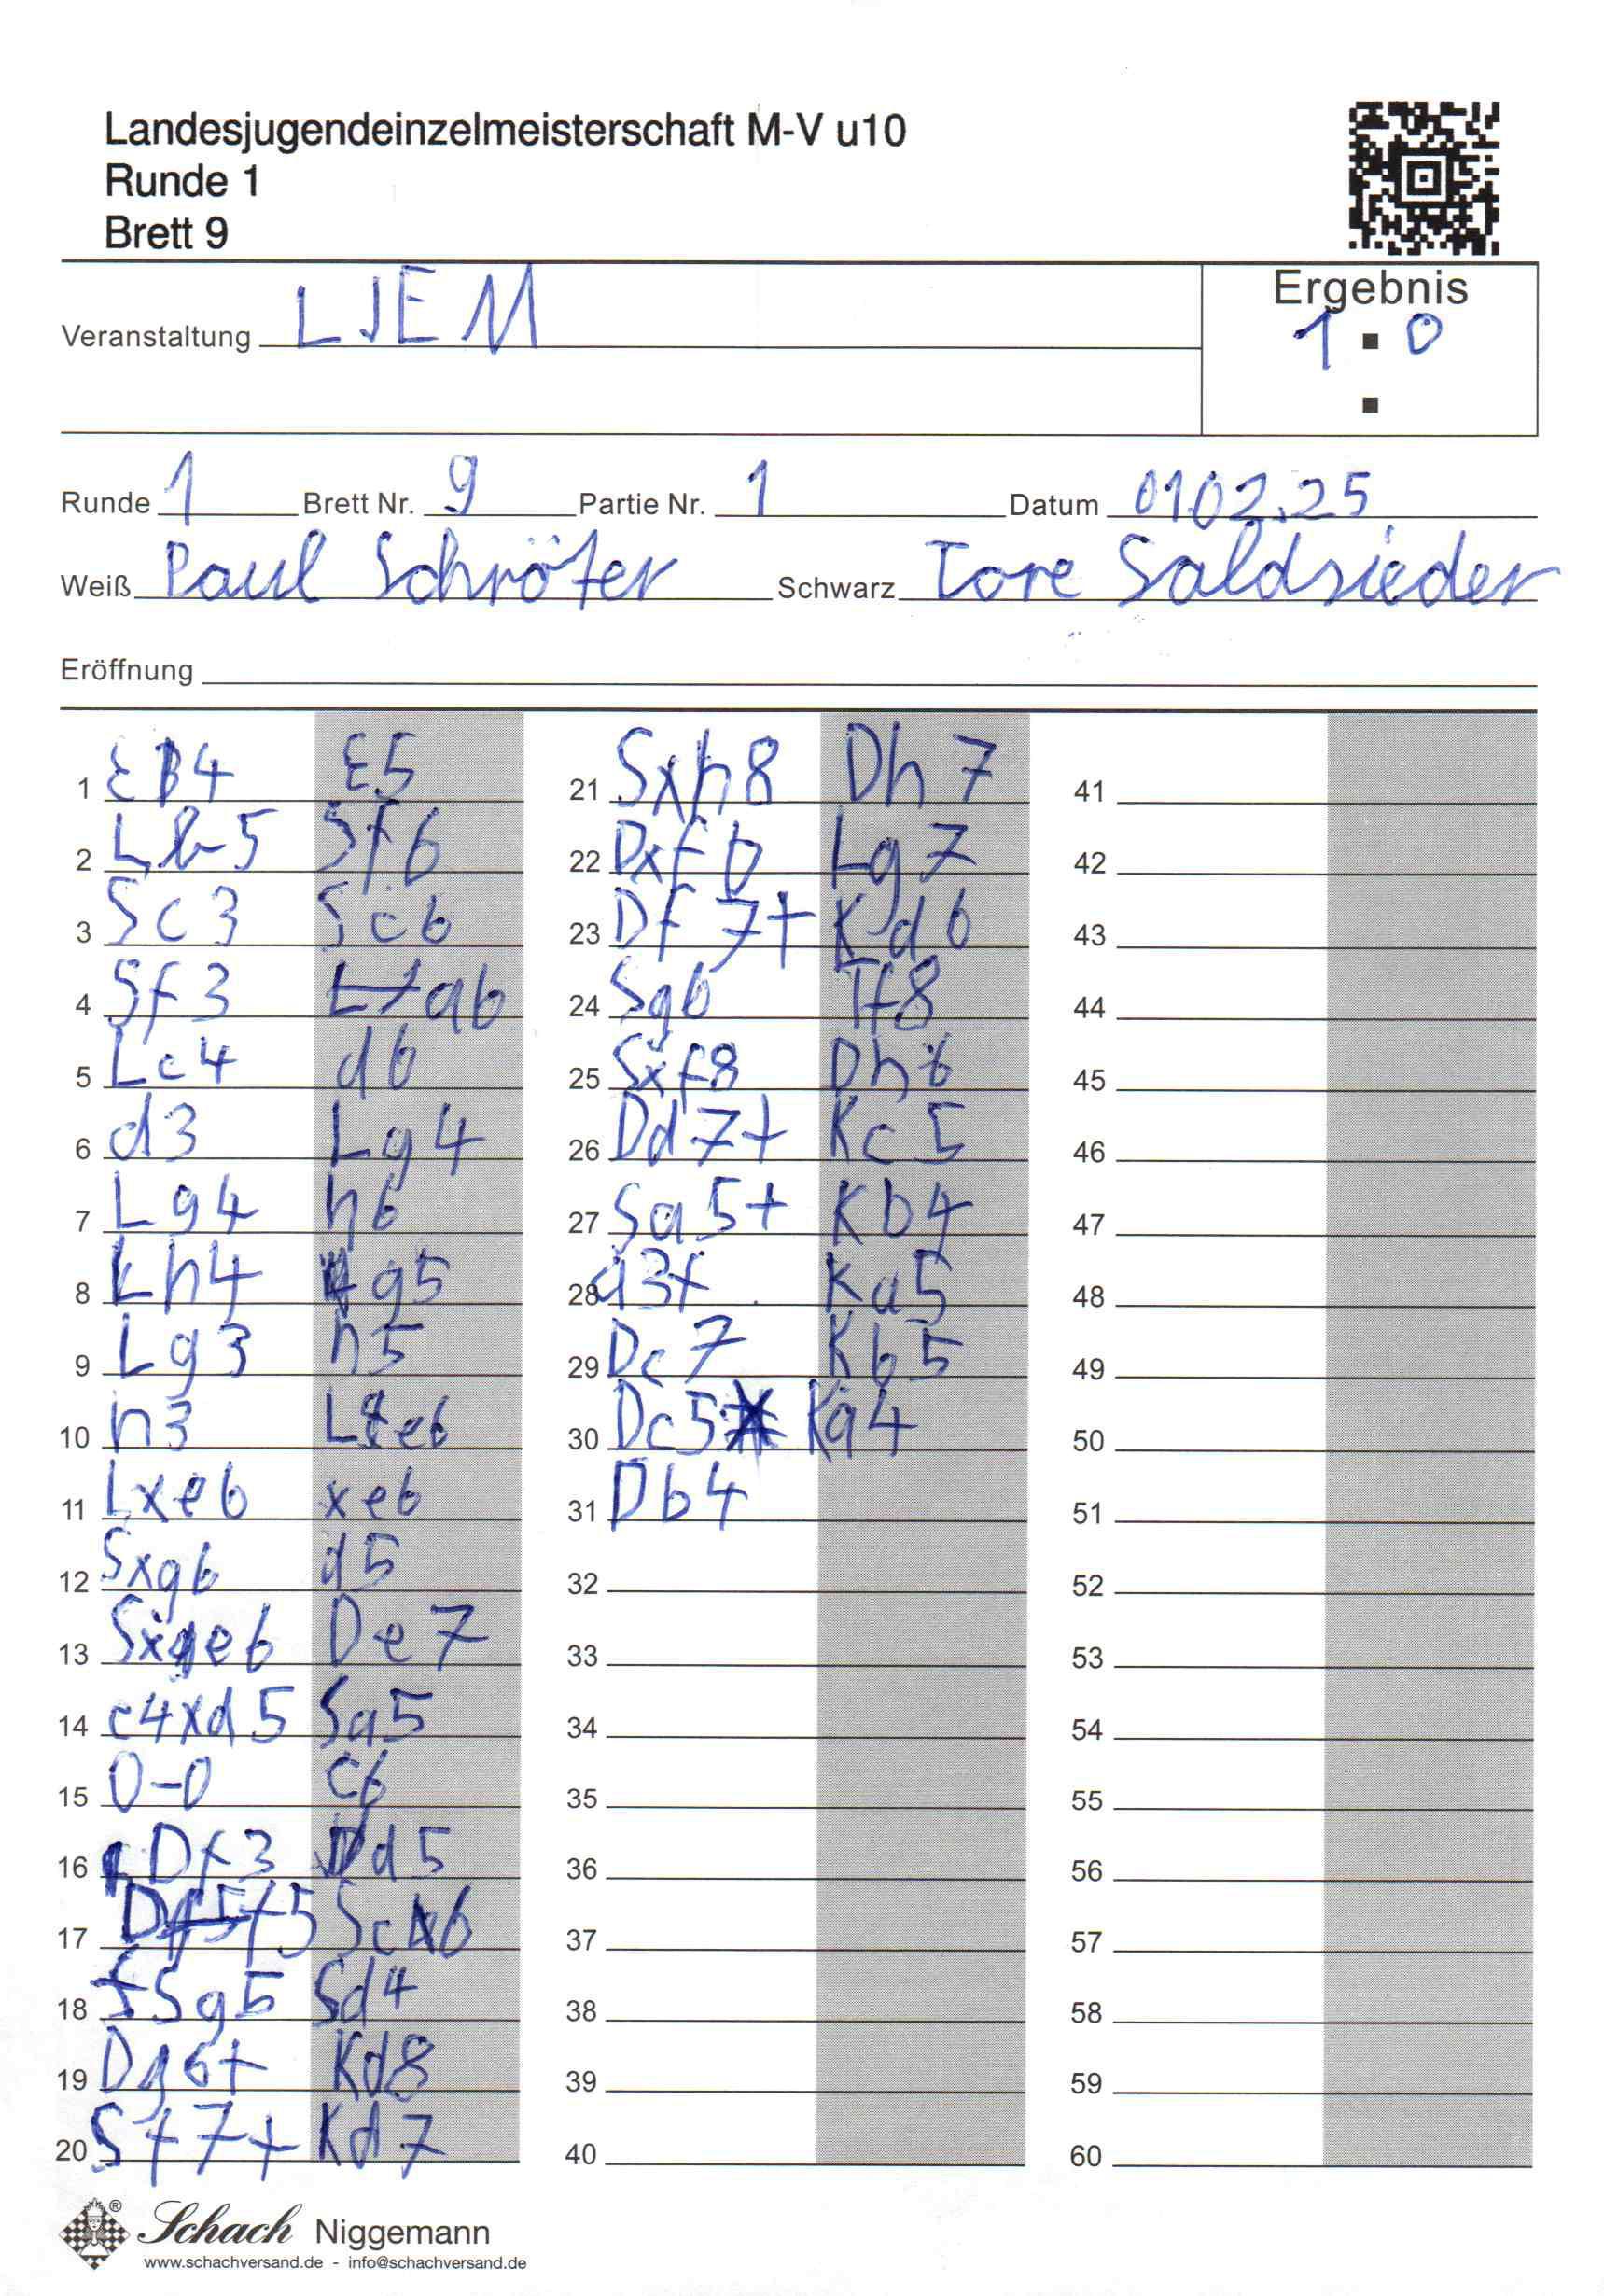 Landesjugendeinzelmeisterschaft M-V u10
Runde 1
Brett 9
Ergebnis
Veranstaltung LJEM
1 : 0
Runde 1 Brett Nr. 9 Partie Nr. 1 Datum 01.02.25
Weiß Paul Schröter Schwarz Tore Saldsieder
Eröffnung
1 E4 E5
2 Lb5 Sf6
3 Sc3 Sc6
4 Sf3 a6
5 Lc4 d6
6 d3 Lg4
7 Lg4 h6
8 Lh4 g5
9 Lg3 h5
10 h3 Le6
11 Lxe6 xe6
12 Sxg6 d5
13 Sxe6 De7
14 e4xd5 Sa5
15 0-0 c6
16 Df3 Dd5
17 Df5 Sc6
18 Sg5 Sd4
19 Dg6+ Kd8
20 Sf7+ Kd7
21 Sxh8 Dh7
22 Dxf6 Lg7
23 Df7+ Kd6
24 Sg6 Tf8
25 Sxf8 Dh6
26 Dd7+ Kc5
27 Sa5+ Kb4
28 a3+ Ka5
29 Dc7 Kb5
30 Dc5 Ka4
31 Db4
32
33
34
35
36
37
38
39
40
41
42
43
44
45
46
47
48
49
50
51
52
53
54
55
56
57
58
59
60
Schach Niggemann
www.schachversand.de - info@schachversand.de